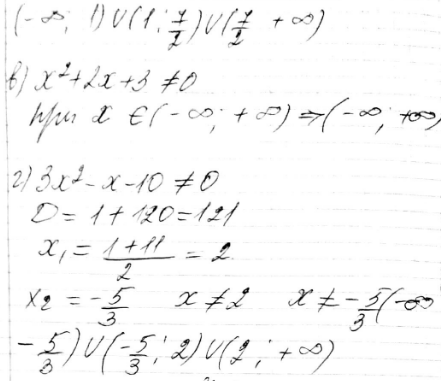 (-∞; 1)∪(1; 7/2)∪(7/2 +∞)
в) x²+2x+3 ≠0
при x ∈(-∞; +∞) ⇒(-∞; +∞)
г) 3x²-x-10 ≠0
D = 1 + 120 = 121
x₁ = (1+11)/2 = 2
x₂ = -5/3 x ≠ 2 x ≠ -5/3 (-∞
-5/3)∪(-5/3; 2)∪(2; +∞)